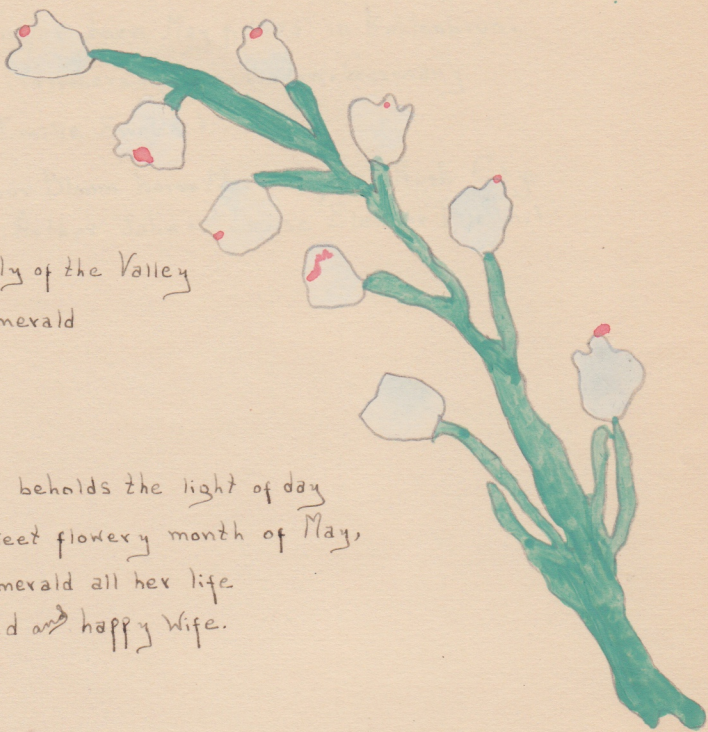 ly of the Valley
merald
beholds the light of day
eet flowery month of May,
merald all her life
d and happy Wife.